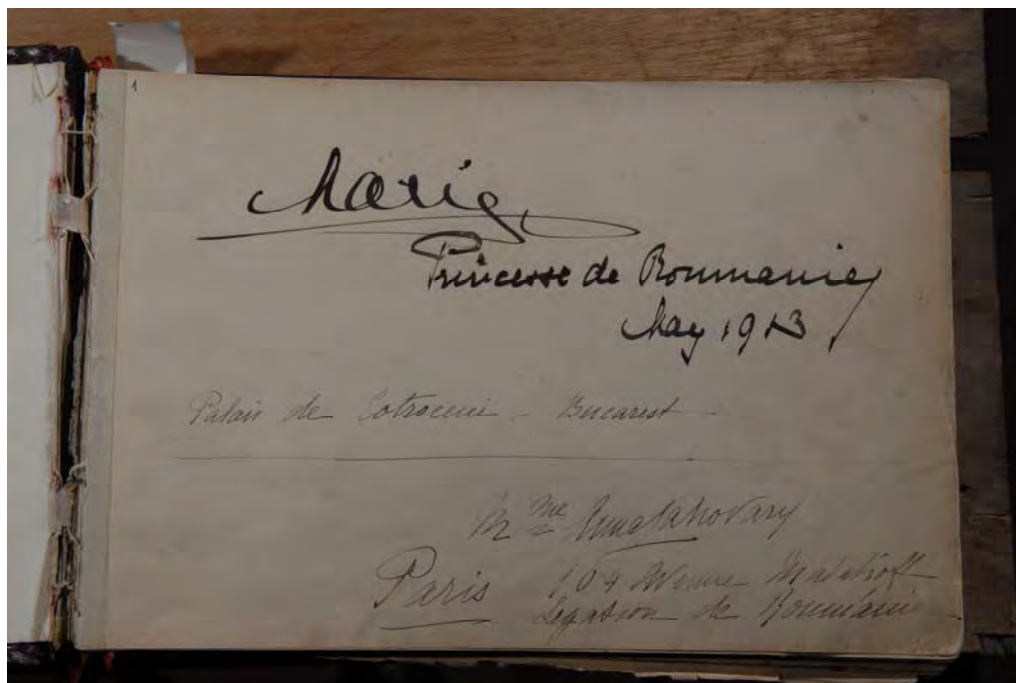 1
Marie,
Princesse de Roumanie
May 1913
Palais de Cotroceni - Bucarest
Mme Lahovary
Paris 104 Avenue Malakoff
Legation de Roumanie